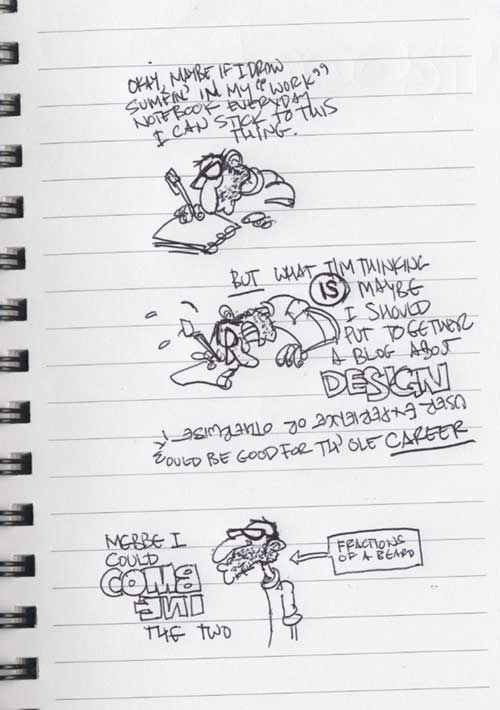 OKAY, MAYBE IF I DROW
SUMFIN' IN MY "WORK"
NOTEBOOK EVERYDAY
I CAN STICK TO THIS
THING.
BUT WHAT I'M THINKING
IS MAYBE
I SHOULD
PUT TOGETHER
A BLOG ABOUT
DESIGN
USER EXPERIENCE OR OTHERWISE
COULD BE GOOD FOR TH' OLE CAREER
MEBBE I
COULD
COMB
INE
THE TWO
FRACTIONS
OF A BEARD